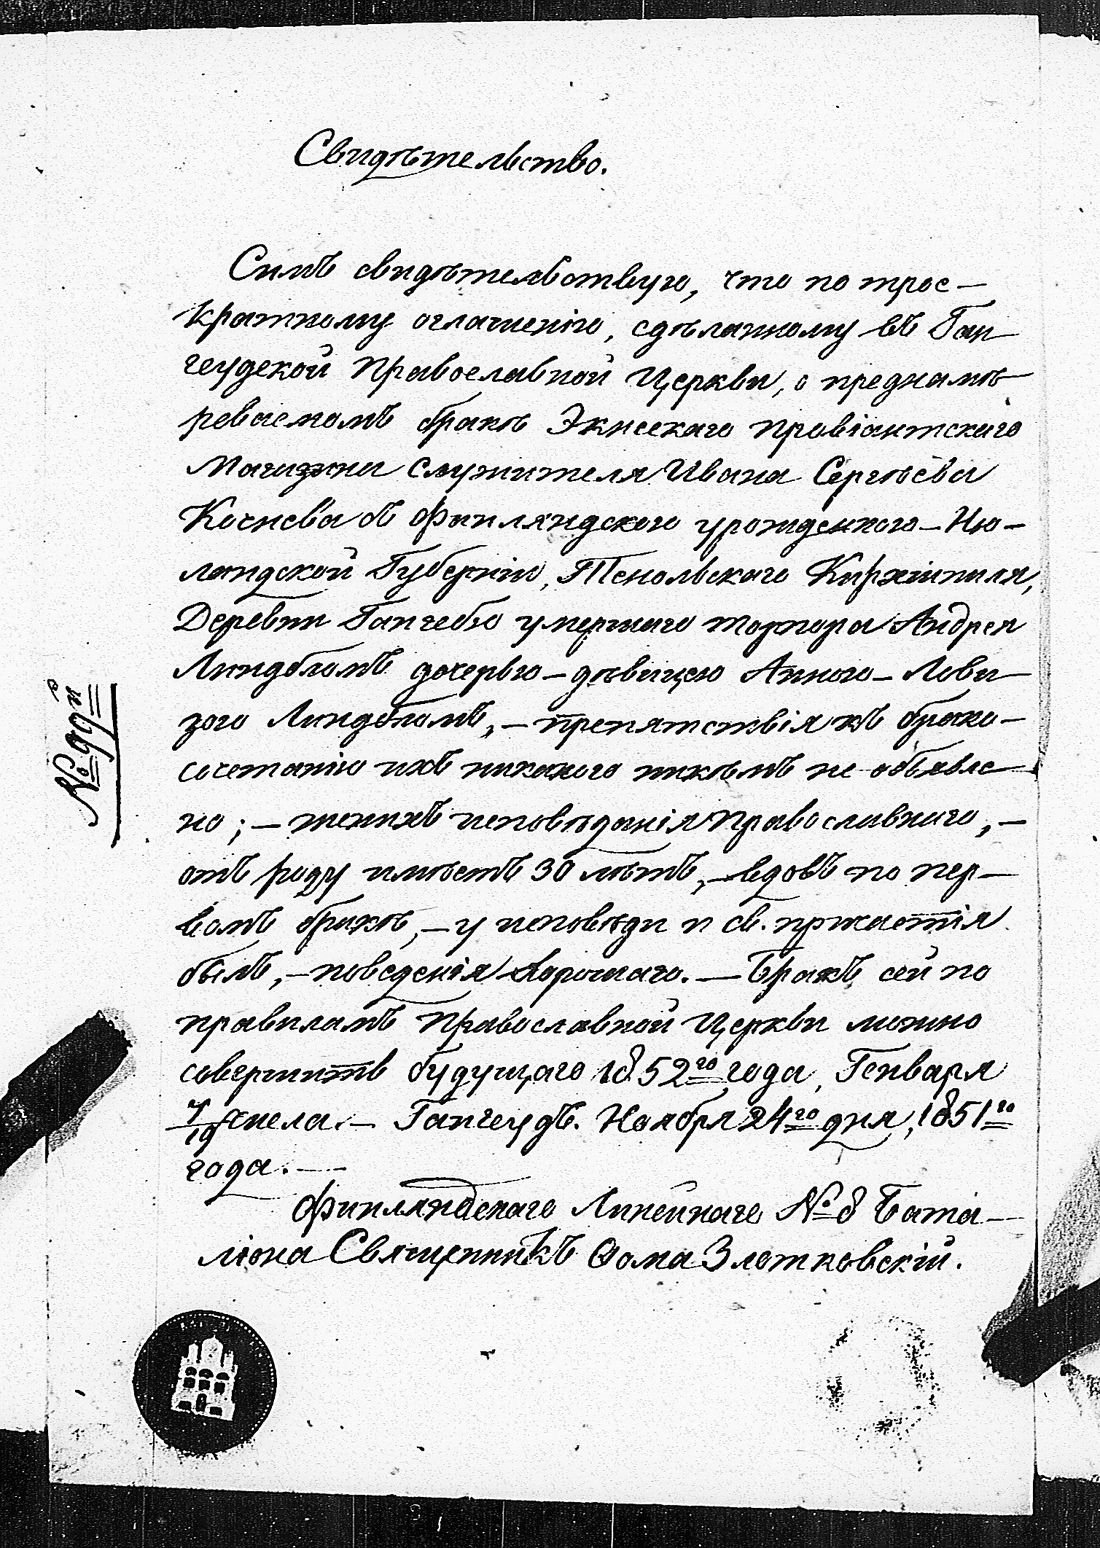 Свидѣтельство.
Симъ свидѣтельствую, что по трое-
кратному оглашенію, сдѣланному въ Ган
геудской Православной Церкви, о преднамѣ
реваемомъ бракѣ Экнескаго Провіантскаго
Магазина служителя Ивана Сергѣева
Кочнева съ Финляндскою урожденкою - Ню-
ландской Губерніи, Тенольскаго Кирхшпиля,
Деревни Гангебю умершаго торпора Андрея
Линдбломъ дочерью - дѣвицею Анною - Лови
зою Линдбломъ, - препятствія къ брако-
сочетанію ихъ никакого никѣмъ не объявле
но; - женихъ исповѣданія Православнаго, -
отъ роду имѣетъ 30 лѣтъ, - вдовъ по пер-
вомъ бракѣ, - у исповѣди и св. причастія
былъ, - поведенія хорошаго. - Бракъ сей по
правиламъ Православной Церкви можно
совершить будущаго 1852го года, Генваря
7/19 числа. - Гангеудъ. Ноября 24го дня, 1851го
года. -
Финляндскаго Линейнаго № 8 Бата-
ліона Священникъ Ѳома Злотковскій.
№ 99й